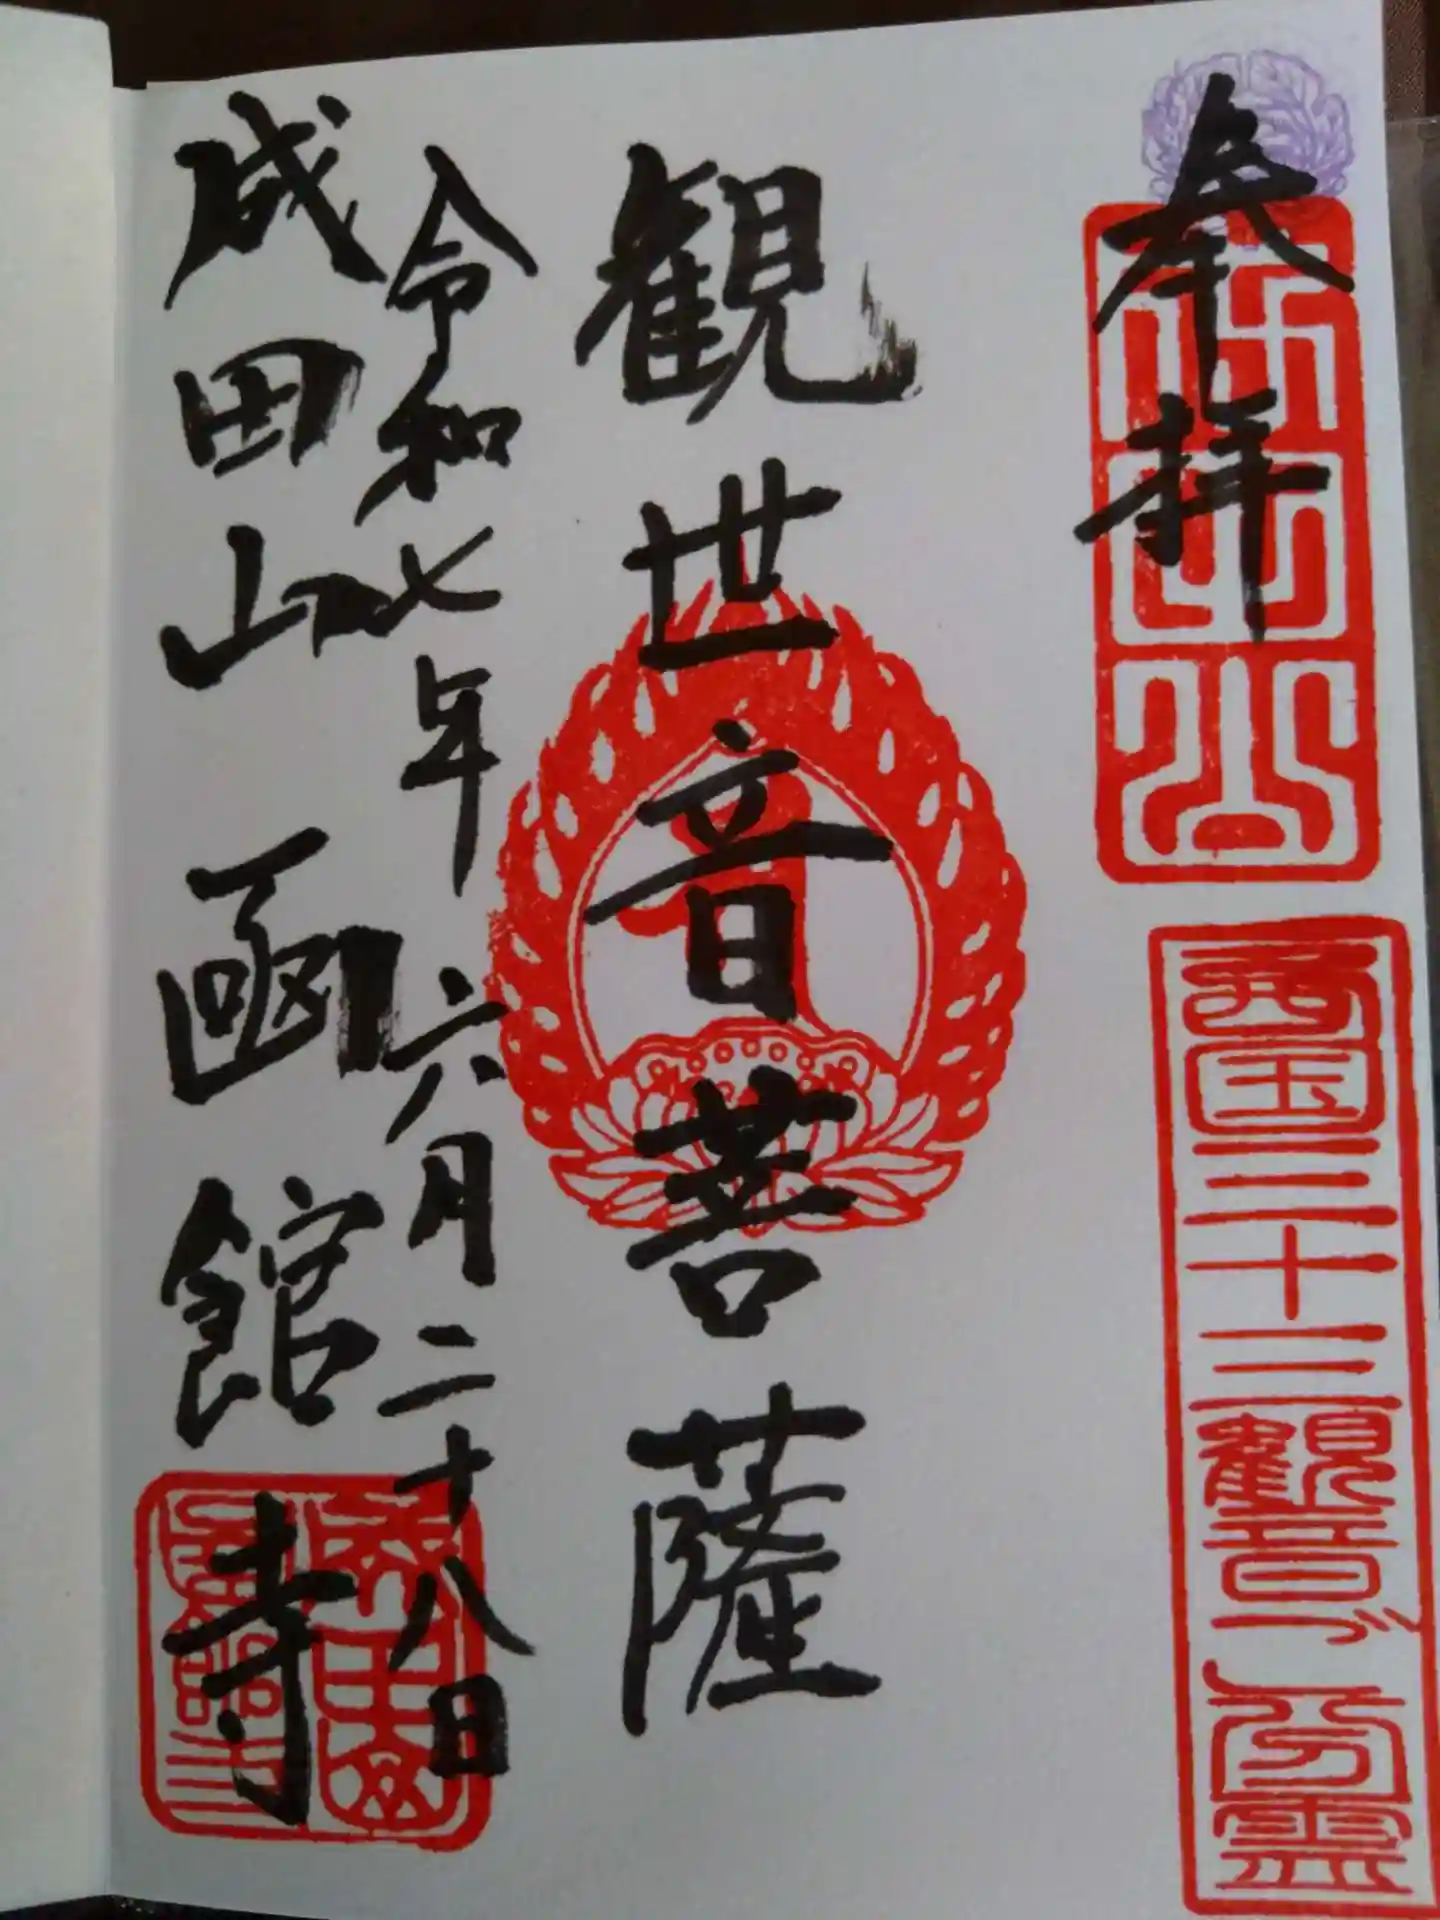 奉拝
成田山
西国三十三観音ご分霊
観世音菩薩
令和七年六月二十八日
成田山 函館寺